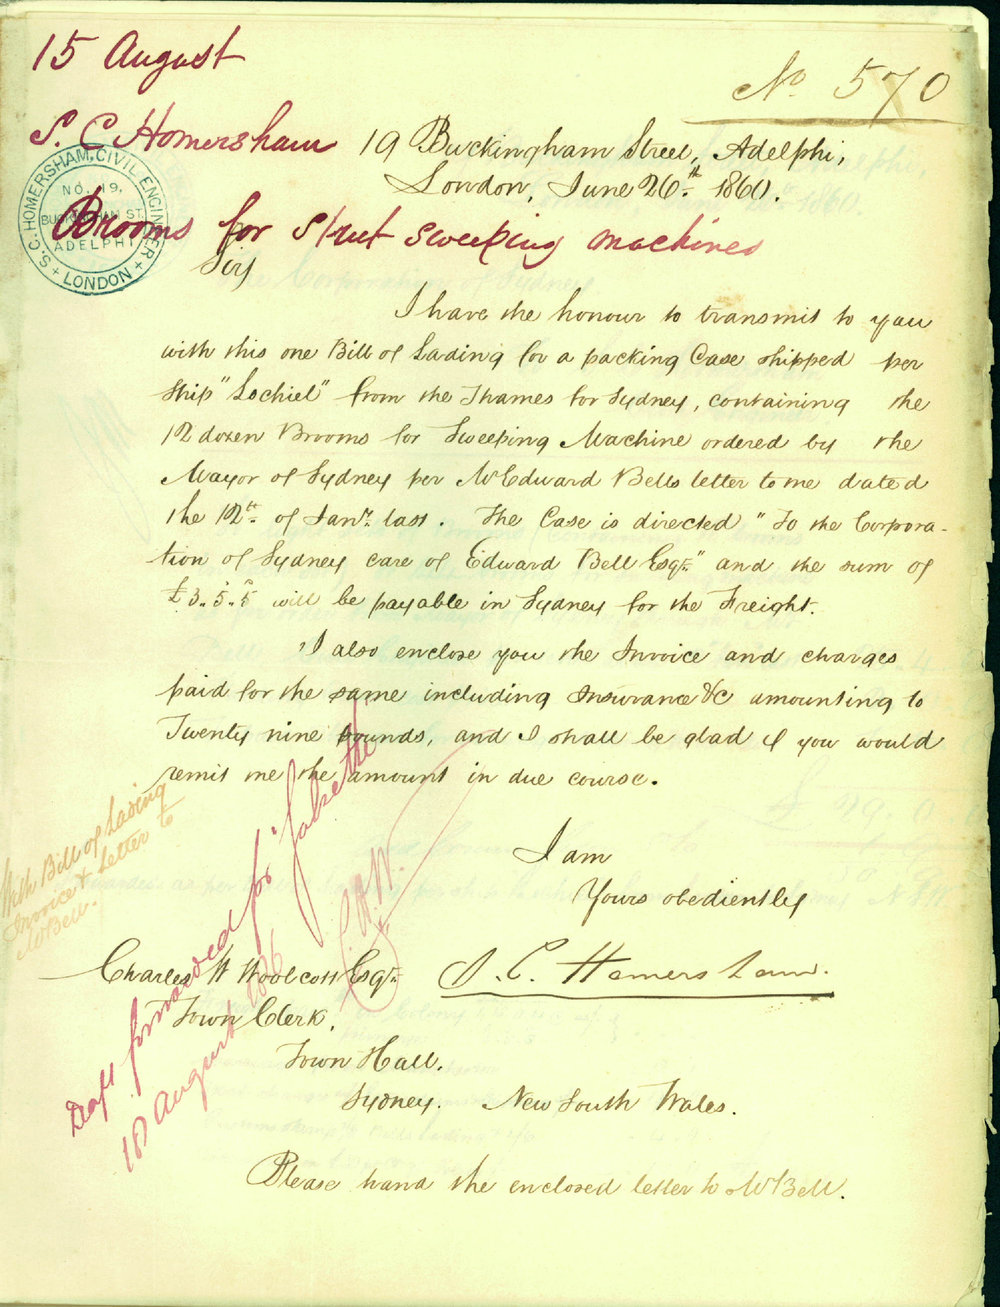 15 August
No. 570
S. C. Homersham
19 Buckingham Street, Adelphi,
London, June 26th 1860.
S. C. HOMERSHAM, CIVIL ENGINEER
No. 19,
BUCKINGHAM ST.
ADELPHI
LONDON
Brooms for Street Sweeping Machines
Sir
I have the honour to transmit to you
with this one Bill of Lading for a packing Case shipped per
Ship "Lochiel" from the Thames for Sydney, containing the
12 dozen Brooms for Sweeping Machine ordered by the
Mayor of Sydney per Mr Edward Bells letter to me dated
the 12th of Jany. last. The Case is directed "To the Corpora-
tion of Sydney care of Edward Bell Esqre" and the sum of
£3.5.5 will be payable in Sydney for the Freight.
I also enclose you the Invoice and charges
paid for the same including Insurance &c amounting to
Twenty nine pounds, and I shall be glad if you would
remit me the amount in due course.
With Bill of Lading
Invoice & Letter to
Mr Bell.
Draft forwarded for
August
I am
Yours obediently
S. C. Homersham.
Charles H Woolcott Esqre
Town Clerk,
Town Hall,
Sydney. New South Wales.
Please hand the enclosed letter to Mr Bell.